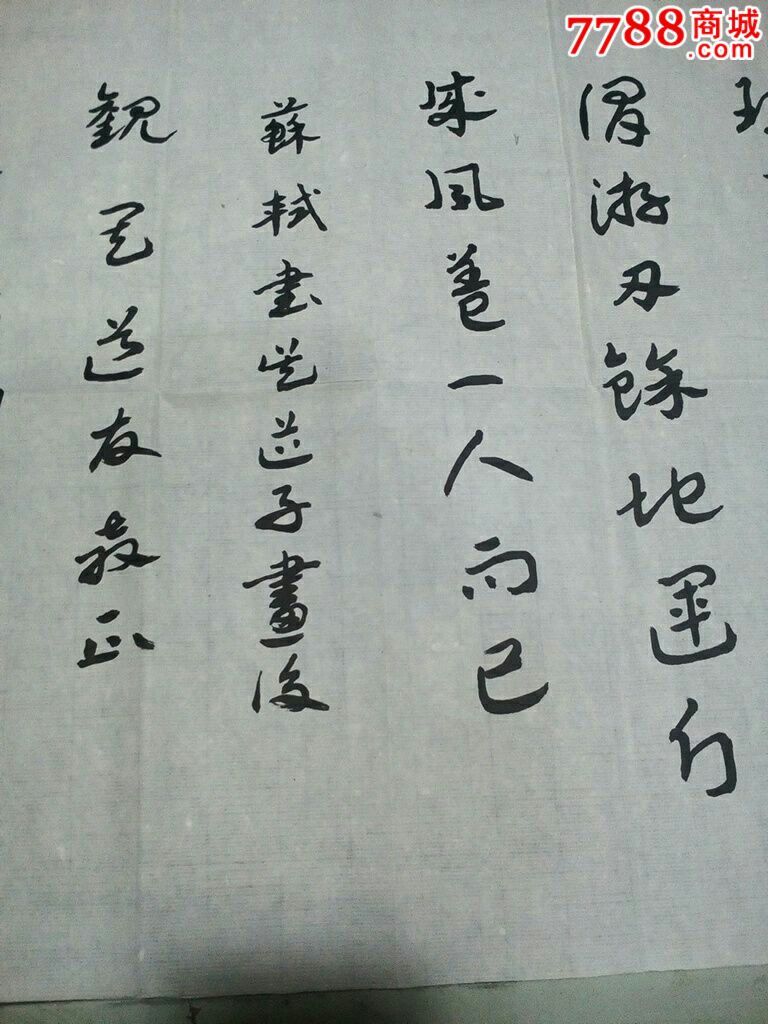 7788商城
.com
謂游刃餘地運斤
成風蓋一人而已
蘇軾書吳道子畫後
觀道友教正